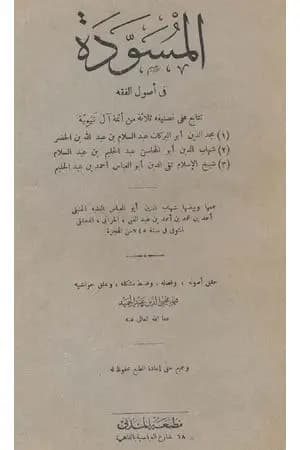 المسوّدة
فى أصول الفقه
تتابع على تصنيفه ثلاثة من أئمة آل تيمية
(١) مجد الدين أبو البركات عبد السلام بن عبد الله بن الخضر
(٢) شهاب الدين أبو المحاسن عبد الحليم بن عبد السلام
(٣) شيخ الإسلام تقى الدين أبو العباس أحمد بن عبد الحليم
جمعها وبيضها شهاب الدين أبو العباس الفقيه الحنبلى
أحمد بن محمد بن أحمد بن عبد الغنى ، الحرانى ، الدمشقى
المتوفى فى سنة ٧٤٥ من الهجرة
حقق أصوله ، وفصله ، وضبط مشكله ، وعلق حواشيه
محمد محيى الدين عبد الحميد
عفا الله تعالى عنه
وجميع حق إعادة الطبع محفوظ له
مطبعة المدنى
٦٨ شارع العباسية بالقاهرة